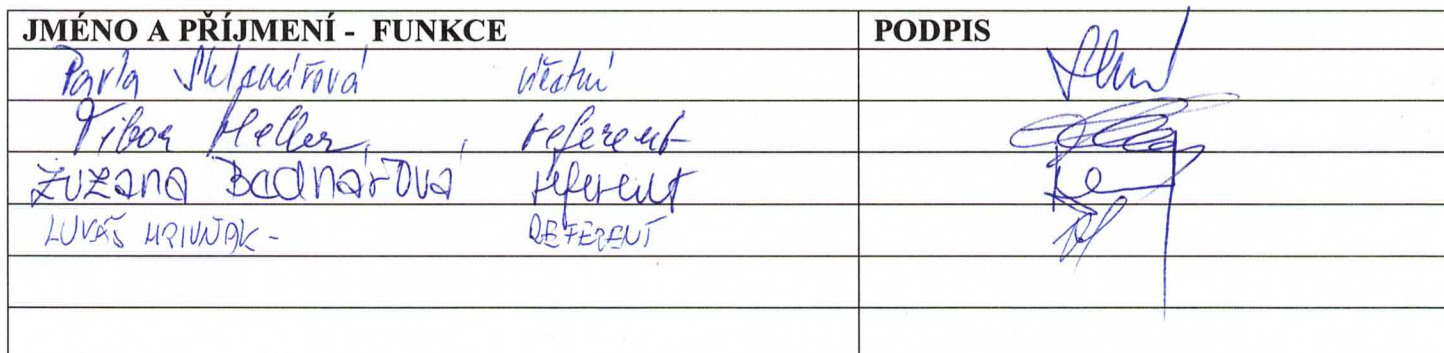 JMÉNO A PŘÍJMENÍ - FUNKCE PODPIS
Pavla Sklenářová účetní
Tibor Heller, referent
Zuzana Bodnárová referent
LUKÁŠ HRIVŇÁK - REFERENT